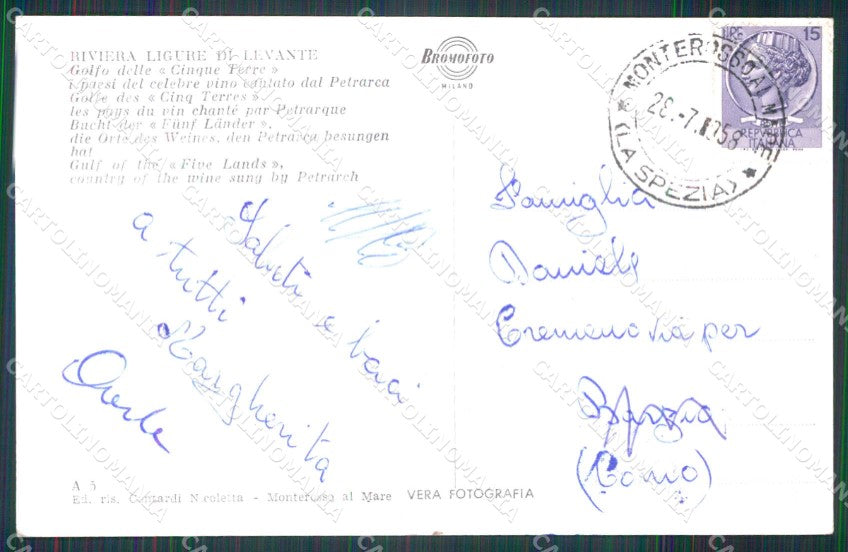 RIVIERA LIGURE DI LEVANTE
Golfo delle « Cinque Terre »
i paesi del celebre vino cantato dal Petrarca
Golfe des « Cinq Terres »
les pays du vin chanté par Petrarque
Bucht der « Fünf Länder »,
die Orte des Weines, den Petrarca besungen
hat
Gulf of the « Five Lands »,
country of the wine sung by Petrarch
BROMOFOTO
MILANO
LIRE 15
REPVBBLICA
ITALIANA
MONTEROSSO AL MARE
28.-7. 1958
(LA SPEZIA)
Saluti e baci
a tutti
Margherita
Oreste
Famiglia
Daniele
Cremeno via per
Barzio
(Como)
A 5
Ed. ris. Contardi Nicoletta - Monterosso al Mare VERA FOTOGRAFIA
CARTOLINOMANIA